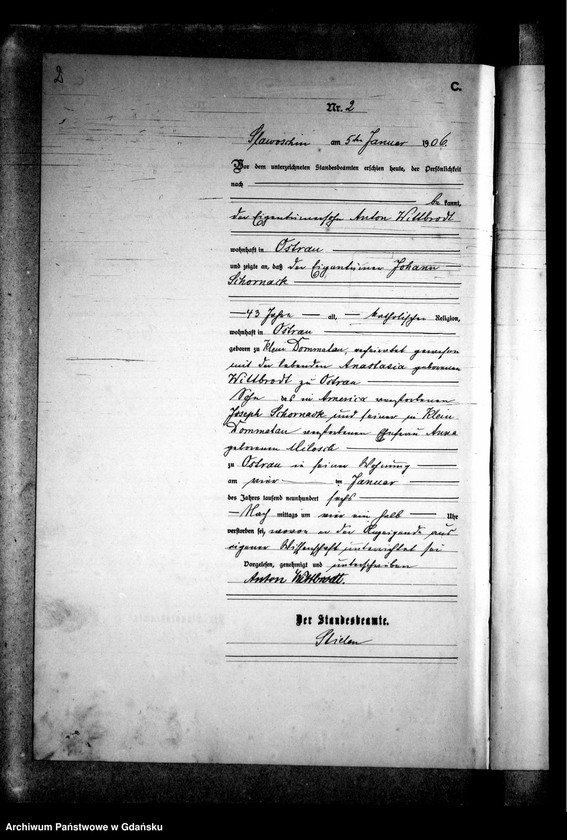 2
C.
Nr. 2
Slawoschin am 5ten Januar 1906.
Vor dem unterzeichneten Standesbeamten erschien heute, der Persönlichkeit
nach
bekannt,
der Eigentümersohn Anton Wittbrodt
wohnhaft in Ostrau
und zeigte an, daß der Eigentümer Johann
Schornack
43 Jahre alt, katholischer Religion,
wohnhaft in Ostrau
geboren zu Klein Dommatau, verheiratet gewesen
mit der lebenden Anastasia geborenen
Wittbrodt zu Ostrau
Sohn des in Amerika verstorbenen
Joseph Schornack und seiner in Klein
Dommatau verstorbenen Ehefrau Anna
geborenen Milosch
zu Ostrau in seiner Wohnung
am vier ten Januar
des Jahres tausend neunhundert sechs
Nach mittags um vier ein halb Uhr
verstorben sei, wovon er der Anzeigende aus
eigener Wissenschaft unterrichtet sei
Vorgelesen, genehmigt und unterschrieben
Anton Wittbrodt.
Der Standesbeamte.
Archiwum Państwowe w Gdańsku